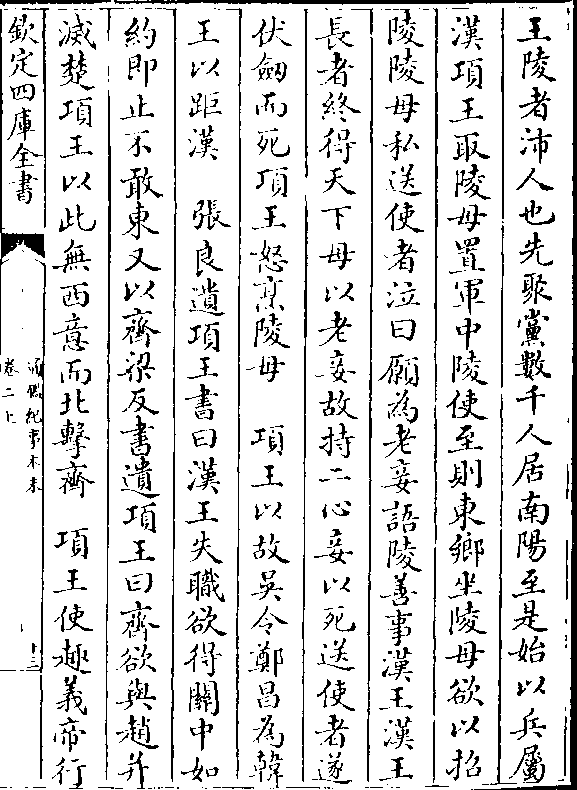 王陵者沛人也先聚黨數千人居南陽至是始以兵屬
漢項王取陵母置軍中陵使至則東鄉坐陵母欲以招
陵陵母私送使者泣曰願為老妾語陵善事漢王漢王
長者終得天下毋以老妾故持二心妾以死送使者遂
伏劔而死項王怒烹陵母　項王以故吳令鄭昌為韓
王以距漢　張良遺項王書曰漢王失職欲得關中如
約即止不敢東又以齊梁反書遺項王曰齊欲與趙并
滅楚項王以此無西意而北擊齊　項王使趣義帝行
欽定四庫全書
通鑑紀事本末
卷二上
十三